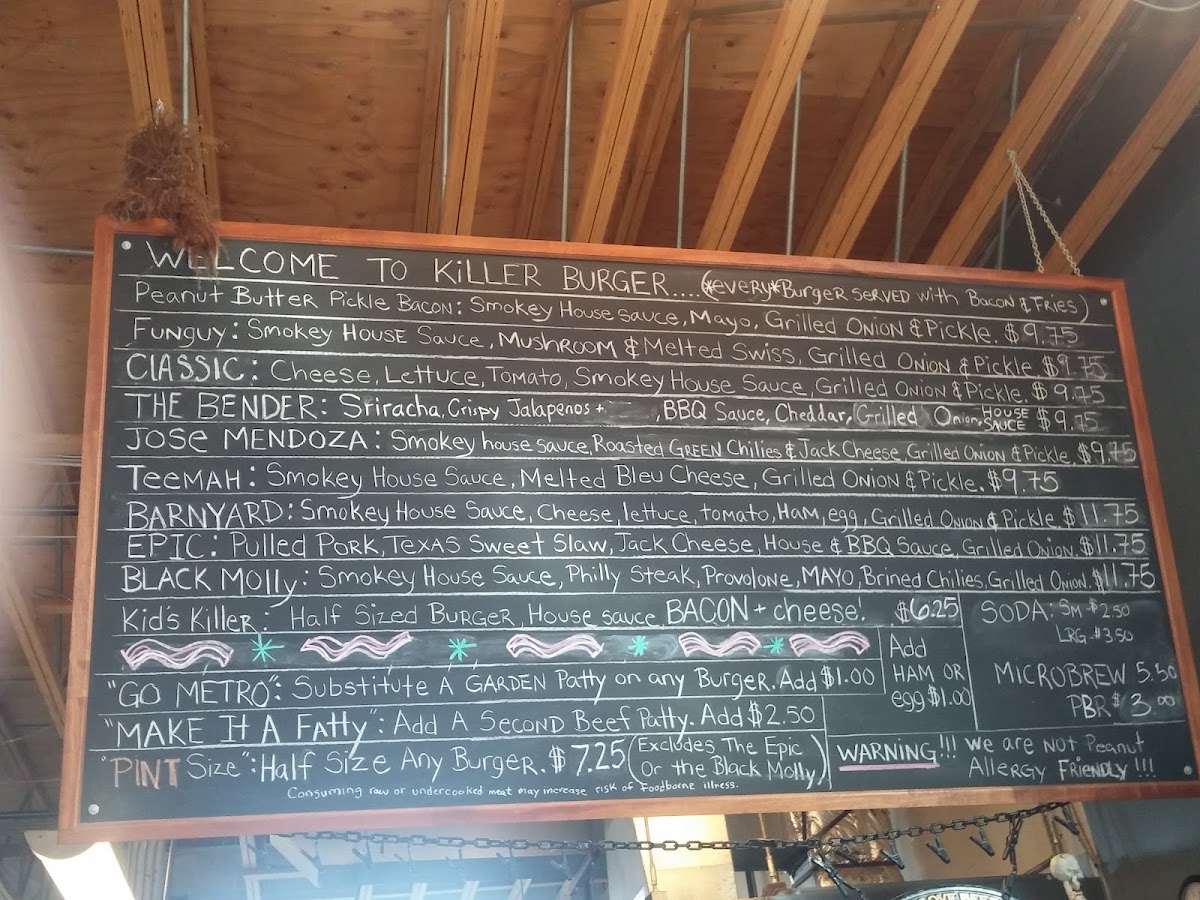 WELCOME TO KiLLER BURGER....(*eveRy*BurgeR SeRVED with Bacon & Fries)
Peanut Butter Pickle Bacon: Smokey House Sauce, Mayo, Grilled Onion & Pickle. $9.75
Funguy: Smokey House Sauce, Mushroom & Melted Swiss, Grilled Onion & Pickle $9.75
CLASSIC: Cheese, Lettuce, Tomato, Smokey House Sauce, Grilled Onion & Pickle. $9.75
THE BENDER: Sriracha, Crispy Jalapenos + , BBQ Sauce, Cheddar, Grilled Onion, HOUSE SAUCE $9.75
JOSe MENDOZA: Smokey house sauce, Roasted GREEN Chilies & Jack Cheese, Grilled Onion & Pickle. $9.75
TeeMAH: Smokey House Sauce, Melted Bleu Cheese, Grilled Onion & Pickle. $9.75
BARNYARD: Smokey House Sauce, Cheese, lettuce, tomato, HAM, egg, Grilled Onion & Pickle $11.75
EPIC: Pulled Pork, Texas Sweet Slaw, Jack Cheese, House & BBQ Sauce, Grilled Onion. $11.75
BLACK MOLLy: Smokey House Sauce, Philly Steak, Provolone, MAYO, Brined Chilies, Grilled Onion. $11.75
Kid's Killer: Half Sized Burger, House sauce, BACON + cheese! $6.25
SODA: SM $2.50
LRG $3.50
Add
HAM OR
egg $1.00
MICROBREW 5.50
PBR $3.00
"GO METRO": Substitute A GARDEN Patty on any Burger. Add $1.00
"MAKE It A Fatty": Add A Second Beef Patty. Add $2.50
"PINT Size": Half Size Any Burger. $7.25 (Excludes The Epic
Or the Black Molly)
WARNING!!! We are not Peanut
Allergy Friendly!!!
Consuming raw or undercooked meat may increase risk of foodborne illness.